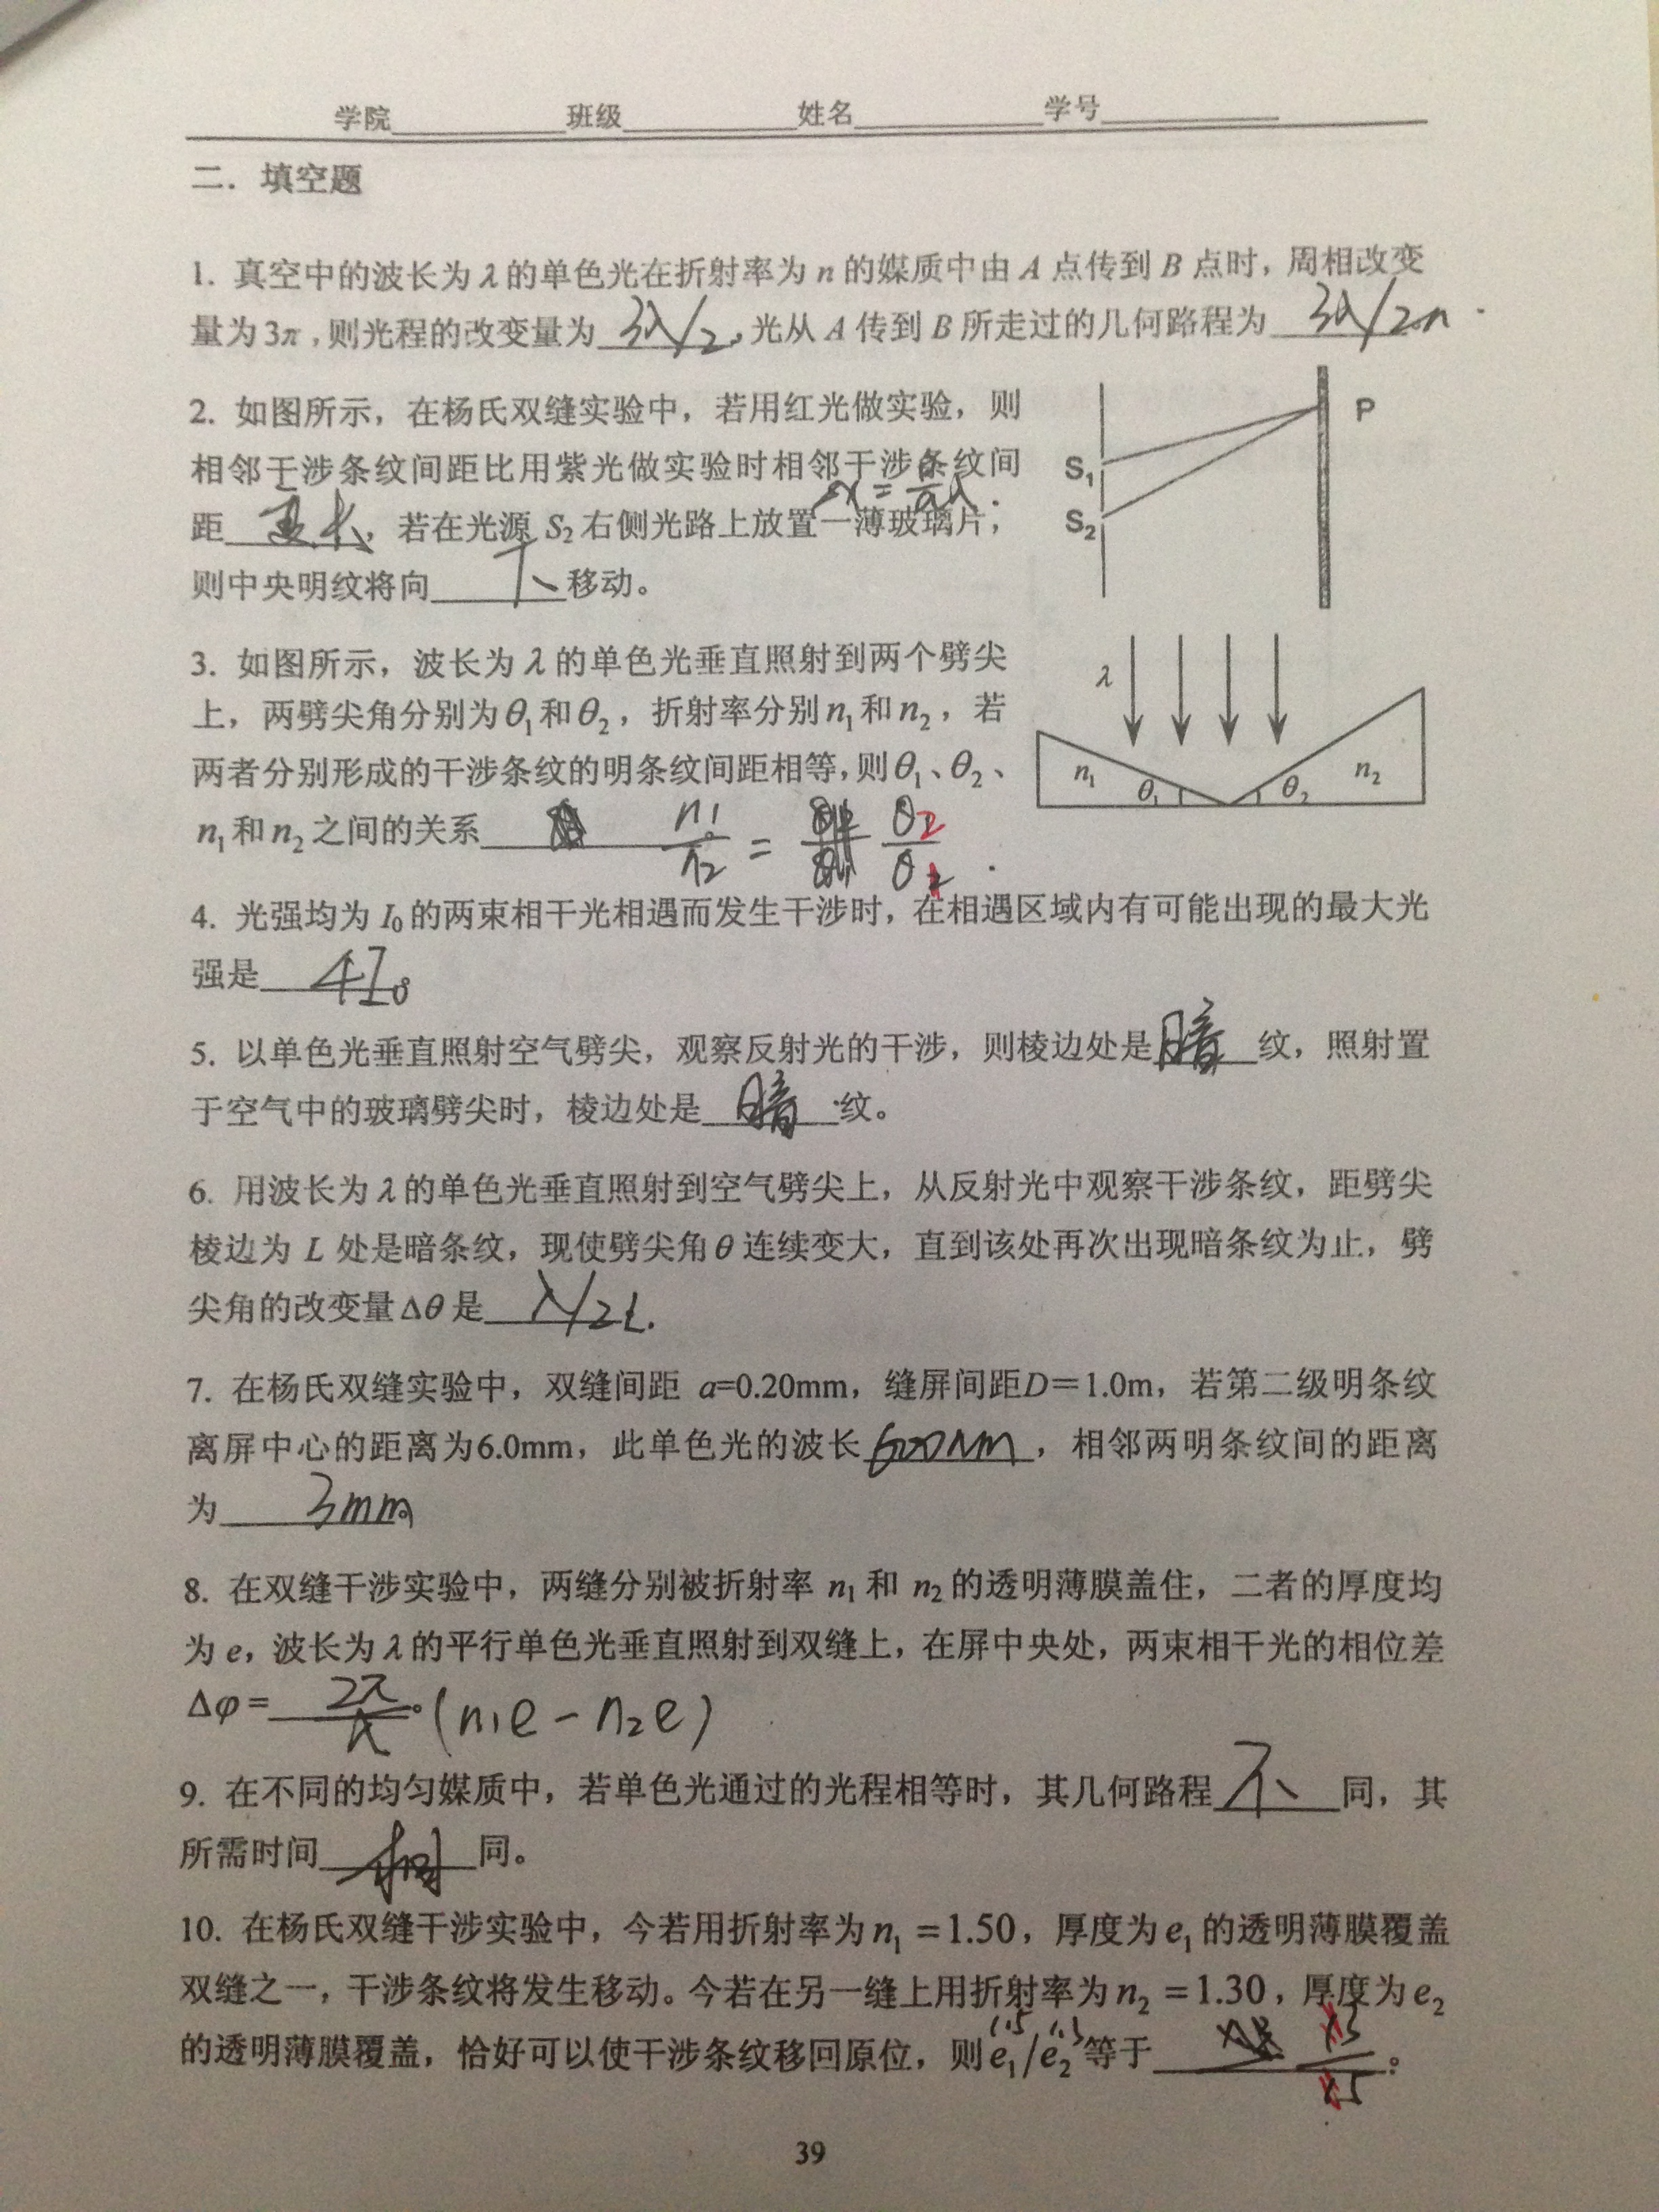 学院 班级 姓名 学号
二．填空题
1. 真空中的波长为λ的单色光在折射率为 n 的媒质中由 A 点传到 B 点时，周相改变
量为3π,则光程的改变量为 3λ/2，光从 A 传到 B 所走过的几何路程为 3λ/2n .
2. 如图所示，在杨氏双缝实验中，若用红光做实验，则
相邻干涉条纹间距比用紫光做实验时相邻干涉条纹间
距 长，若在光源 S₂右侧光路上放置一薄玻璃片，
则中央明纹将向 下 移动。
P
S₁
S₂
3. 如图所示，波长为λ的单色光垂直照射到两个劈尖
上，两劈尖角分别为θ₁和θ₂，折射率分别n₁和n₂，若
两者分别形成的干涉条纹的明条纹间距相等,则θ₁、θ₂、
n₁和n₂之间的关系 n₁/n₂ = θ₂/θ₁ .
λ
n₁ θ₁ θ₂ n₂
4. 光强均为 I₀ 的两束相干光相遇而发生干涉时，在相遇区域内有可能出现的最大光
强是 4I₀。
5. 以单色光垂直照射空气劈尖，观察反射光的干涉，则棱边处是 暗 纹，照射置
于空气中的玻璃劈尖时，棱边处是 暗 纹。
6. 用波长为λ的单色光垂直照射到空气劈尖上，从反射光中观察干涉条纹，距劈尖
棱边为 L 处是暗条纹，现使劈尖角θ连续变大，直到该处再次出现暗条纹为止，劈
尖角的改变量Δθ是 λ/2L.
7. 在杨氏双缝实验中，双缝间距 a=0.20mm，缝屏间距D＝1.0m，若第二级明条纹
离屏中心的距离为6.0mm，此单色光的波长 600nm，相邻两明条纹间的距离
为 3mm。
8. 在双缝干涉实验中，两缝分别被折射率 n₁ 和 n₂ 的透明薄膜盖住，二者的厚度均
为 e，波长为λ的平行单色光垂直照射到双缝上，在屏中央处，两束相干光的相位差
Δφ= 2π/λ。(n₁e-n₂e)
9. 在不同的均匀媒质中，若单色光通过的光程相等时，其几何路程 不 同，其
所需时间 相 同。
10. 在杨氏双缝干涉实验中，今若用折射率为n₁ =1.50，厚度为e₁的透明薄膜覆盖
双缝之一，干涉条纹将发生移动。今若在另一缝上用折射率为n₂ =1.30，厚度为e₂
1.5 1.3
的透明薄膜覆盖，恰好可以使干涉条纹移回原位，则e₁/e₂等于 。
39